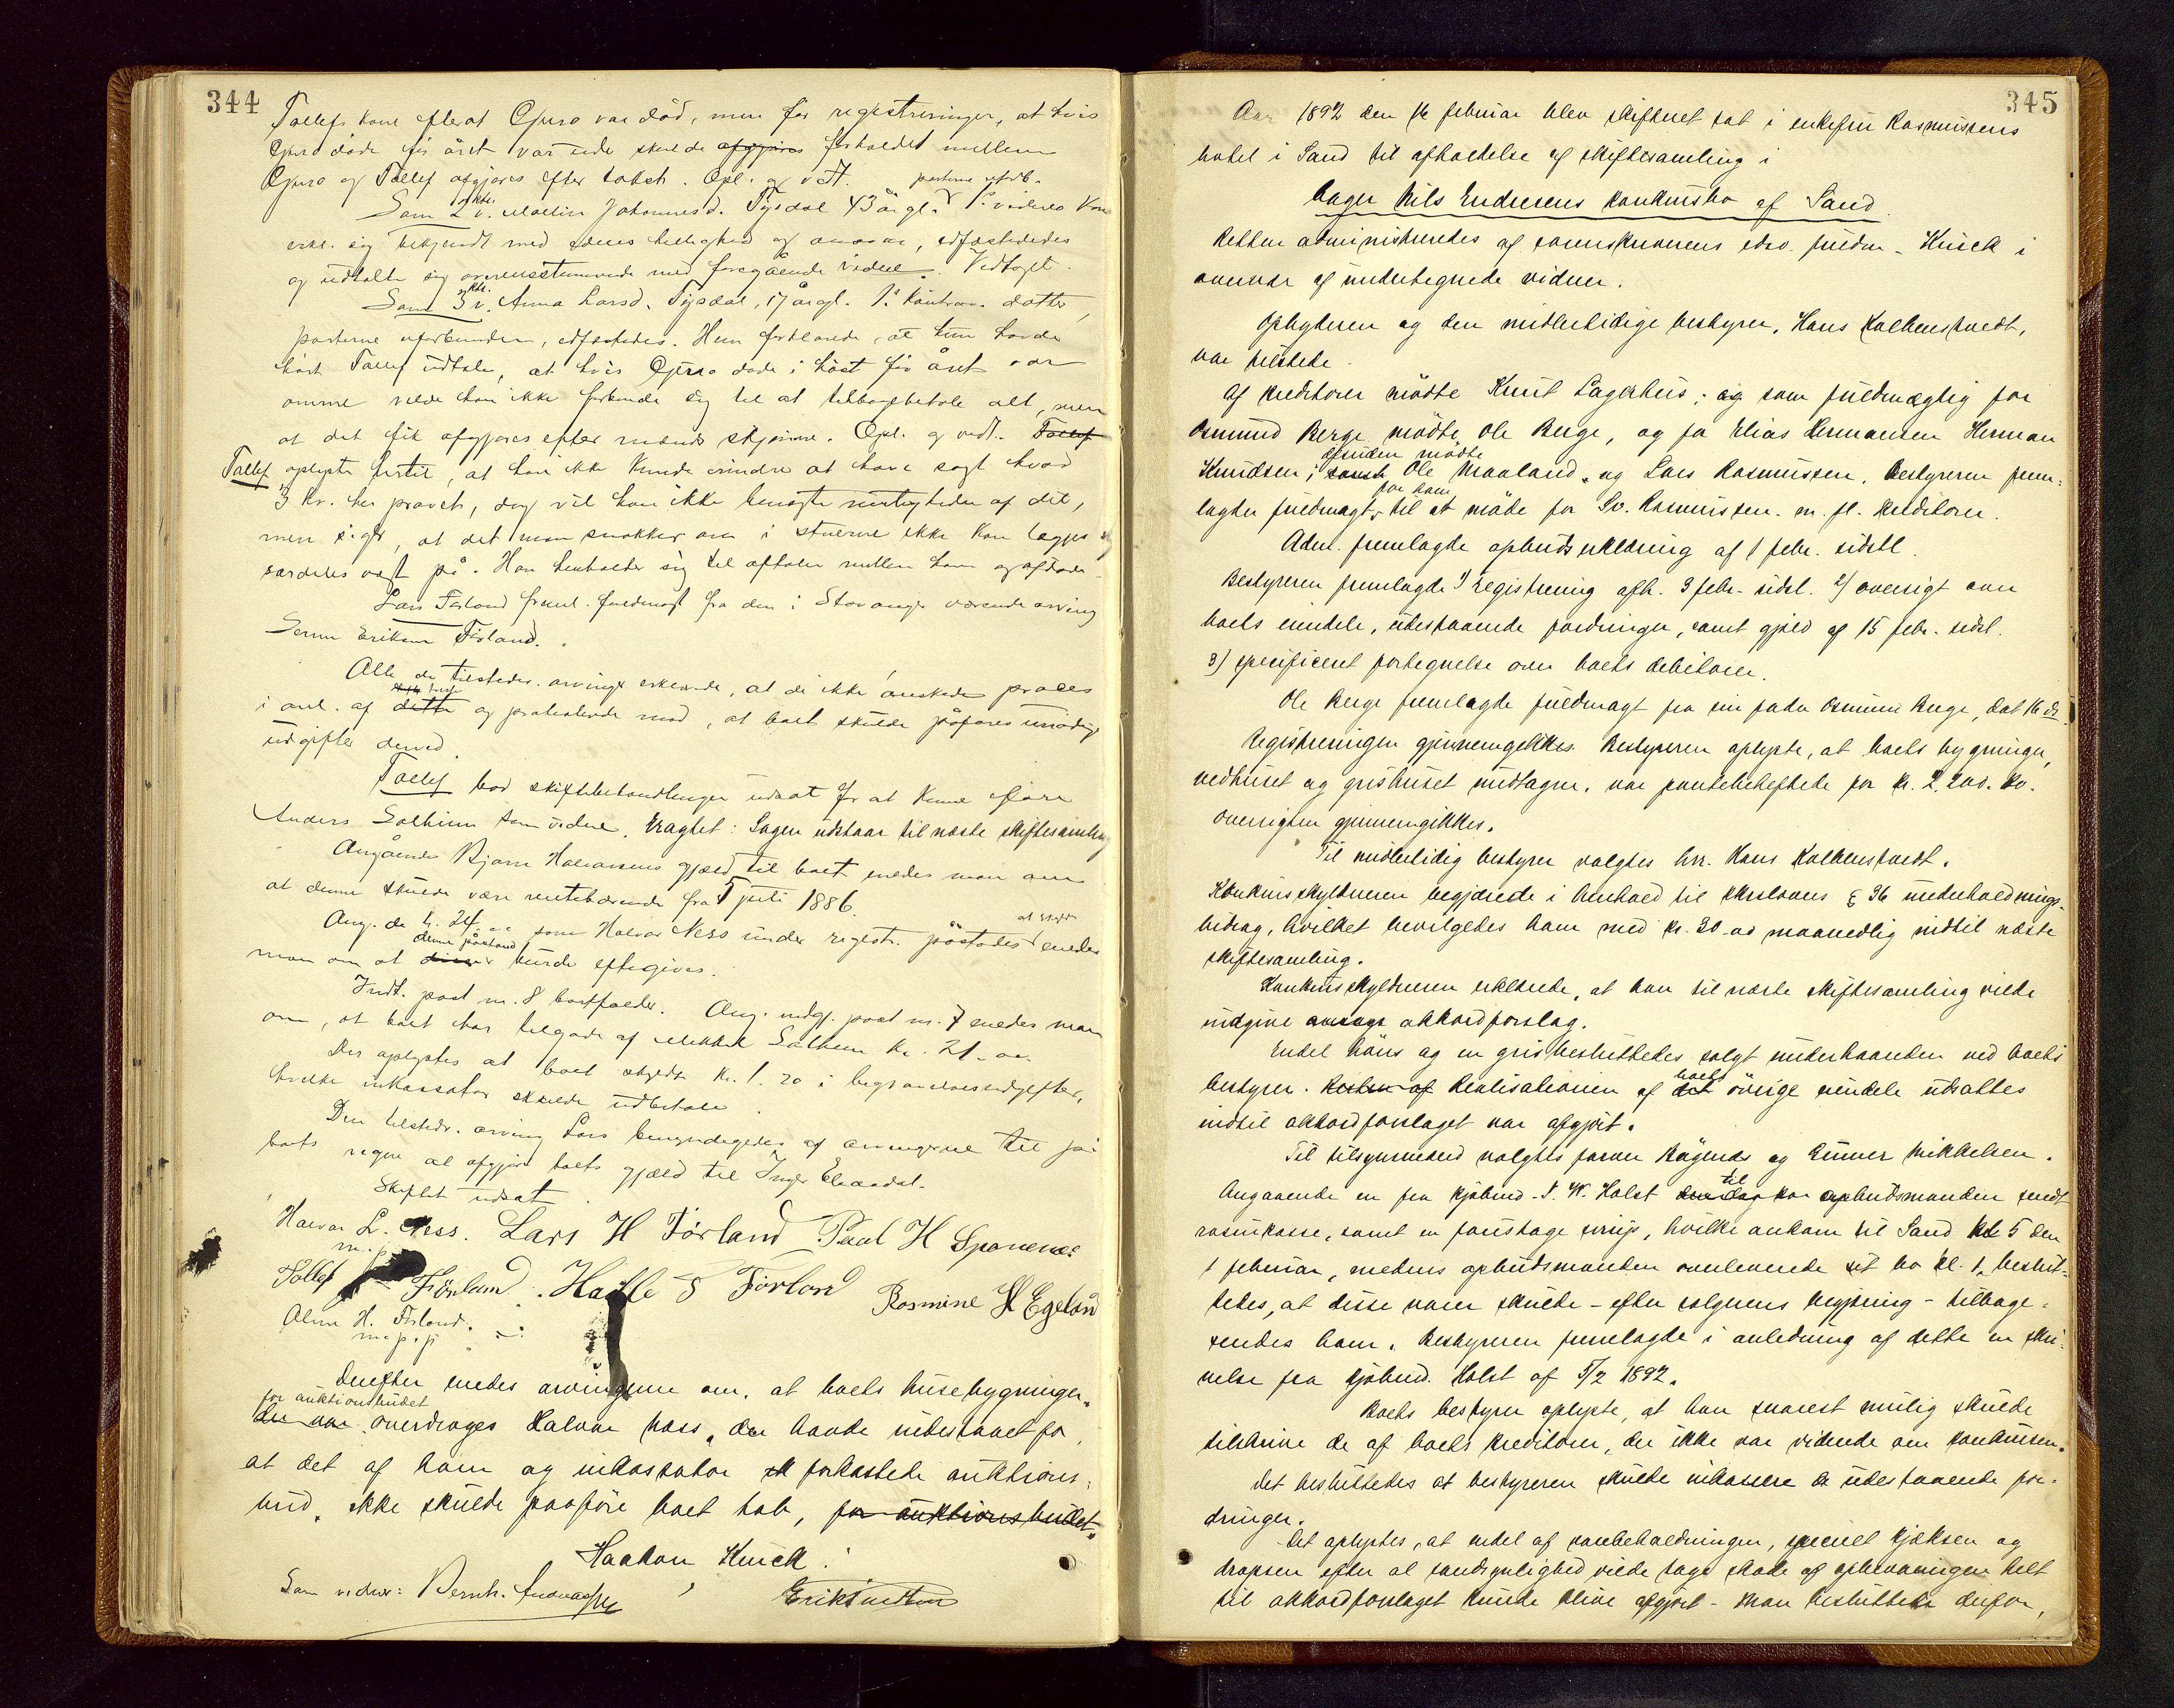 344
Tollefs kone efterat Gjuro var død, men før registreringen, at hvis
Gjuro døde før året var ude skulde afgjøres forholdet mellem
Gjuro og Tollef afgjøres efter tabet. Opl. og vedt. parterne uforb.
Som 2 v. Mallin Johannesd. Tysdal 43 år gl. 1ste vidnes kone
erkl. sig bekjendt med edens hellighed og ansvar, edfæstededes
og udtalte sig overensstemmende med foregående vidne. Vedtaget.
Som 3 v. Anna Larsd. Tysdal, 17 år gl. datter,
parterne uforbunden, edfæstedes. Hun forklarede, at hun havde
hørt Tollef udtale, at hvis Gjuro døde i høst før året var
omme vilde han ikke forbinde sig til at tilbagebetale alt, men
at det fik afgjøres efter mænds skjønne. Opl. og vedt. Tollef
Tollef oplyste hertil, at han ikke kunde erindre at have sagt hvad
3 v. har provet, dog vil han ikke benegte rigtigheden af det,
men siger, at det man snakker om i stuerne ikke kan lægges
særdeles vægt på. Han henholder sig til aftalen mellem ham og afdøde.
Lars Førland freml. fuldmagt fra den i Stavanger værende arving
Serine Eriksen Førland.
Alle de tilstedev. arvinger erklærede, at de ikke ønskede proces
i anl. af dette og protesterede mod, at boet skulde påføres unødige
udgifter derved.
Tollef bad skiftebehandlingen udsat for at kunne føre
Anders Solheim som vidne. Eragtet: Sagen udstaar til næste skiftesamling
Angående Bjørn Halvorsens gjæld til boet enedes man om
at denne skulde være rentebærende fra 5 juli 1886.
Ang. de kr. 24 som Halvor Næss under registr. påstodes enedes
man om at denne påstand burde eftergives.
Indt. post nr. 8 bortfalder. Ang. udg. post nr. 7 enedes man
om, at boet har tilgode af Mikkel Solheim kr. 21.00.
Der oplystes at boet skyldte kr. 1.20 i begravelsesudgifter,
hvilke inkassator skulde udbetale.
Den tilstedev. arving Lars bemyndigedes af arvingerne til på
boets vegne at afgjøre boets gjæld til Inger
Skiftet udsat.
Halvor L. Ness. Lars H Førland Paul H
m.p.p.
Tollef Førland. Halle S Førland Rasmine H Egeland
Aline H. Førland.
m.p.p.
Derefter enedes arvingerne om, at boets husebygninger,
for auktionsbudet
der var overdroges Halvor Næss, der havde indestaaet for
at det af ham og inkassator forkastede auktions-
bud, ikke skulde paaføre boet tab, for auktionsbudet.
Haakon Knick.
Som vidner: Bernh. Andreassen Erik Knudsen
345
Aar 1892 den 16 februar blev skifteret sat i enkefru Rasmussens
hotel i Sand til afholdelse af skiftesamling i
bager Nils Endresens konkursbo af Sand
Retten administreredes af sorenskriverens edsv. fuldm. Knick i
overvær af undertegnede vidner.
Opbyderen og den midlertidige bestyrer, Hans Kolbenstvedt,
var tilstede.
Af kreditorer mødte Knut Lagerhus; og som fuldmægtig for
Osmund Berge mødte Ole Berge, og for Elias Hermansen Herman
desuden mødte
Knudsen; samt Ole Maaland og Lars Rasmussen. Bestyreren frem-
for ham
lagde fuldmagt til at møde for Sv. Rasmussen m. fl. kreditorer.
Adm. fremlagde opbudserklæring af 1 febr. sidstl.
Bestyreren fremlagde 1) registrering afh. 3 febr. sidstl. 2) oversigt over
boets eiendele, udestaaende fordringer, samt gjæld af 15 febr. sidstl.
3) specificeret fortegnelse over boets debitorer.
Ole Berge fremlagde fuldmagt fra sin fader Osmund Berge, dat 16 ds.
Registreringen gjennemgikkes. Bestyreren oplyste, at boets bygninger,
vedhuset og grishuset undtagen, var pantebeheftede for kr. 2.200.00.
Oversigten gjennemgikkes.
Til midlertidig bestyrer valgtes hrr. Hans Kolbenstvedt.
Konkursskyldneren begjærede i henhold til skiftelovens § 36 underholdnings-
bidrag, hvilket bevilgedes ham med kr. 30.00 maanedlig indtil næste
skiftesamling.
Konkursskyldneren erklærede, at han til næste skiftesamling vilde
indgive akkordforslag.
Endel høns og en gris besluttedes solgt underhaanden ved boets
bestyrer. Resten af Realisationen af det boets øvrige eiendele udsattes
indtil akkordforslaget var afgjort.
Til tilsynsmænd valgtes farver Bøgends og Gunner Mikkelsen.
Angaaende en fra kjøbmd. P. W. Holst til opbudsmanden sendt
rosinkasse, samt en faustage sirup, hvilke ankom til Sand kl 5 den
1 februar, medens opbudsmanden overleverede sit bo kl. 1, beslut-
tedes, at disse varer skulde - efter sælgerens begjæring - tilbage-
sendes ham. Bestyreren fremlagde i anledning af dette en skri-
velse fra kjøbmd. Holst af 5/2 1892.
Boets bestyrer oplyste, at han snarest mulig skulde
tilskrive de af boets kreditorer, der ikke var vidende om konkursen.
Det besluttedes at bestyreren skulde inkassere de udestaaende for-
dringer.
Det oplystes, at endel af varebeholdningen, specielt kjæksen og
dropsen efter al sandsynlighed vilde tage skade af opbevaringen helt
til akkordforslaget kunde blive afgjort - Man besluttede derfor,